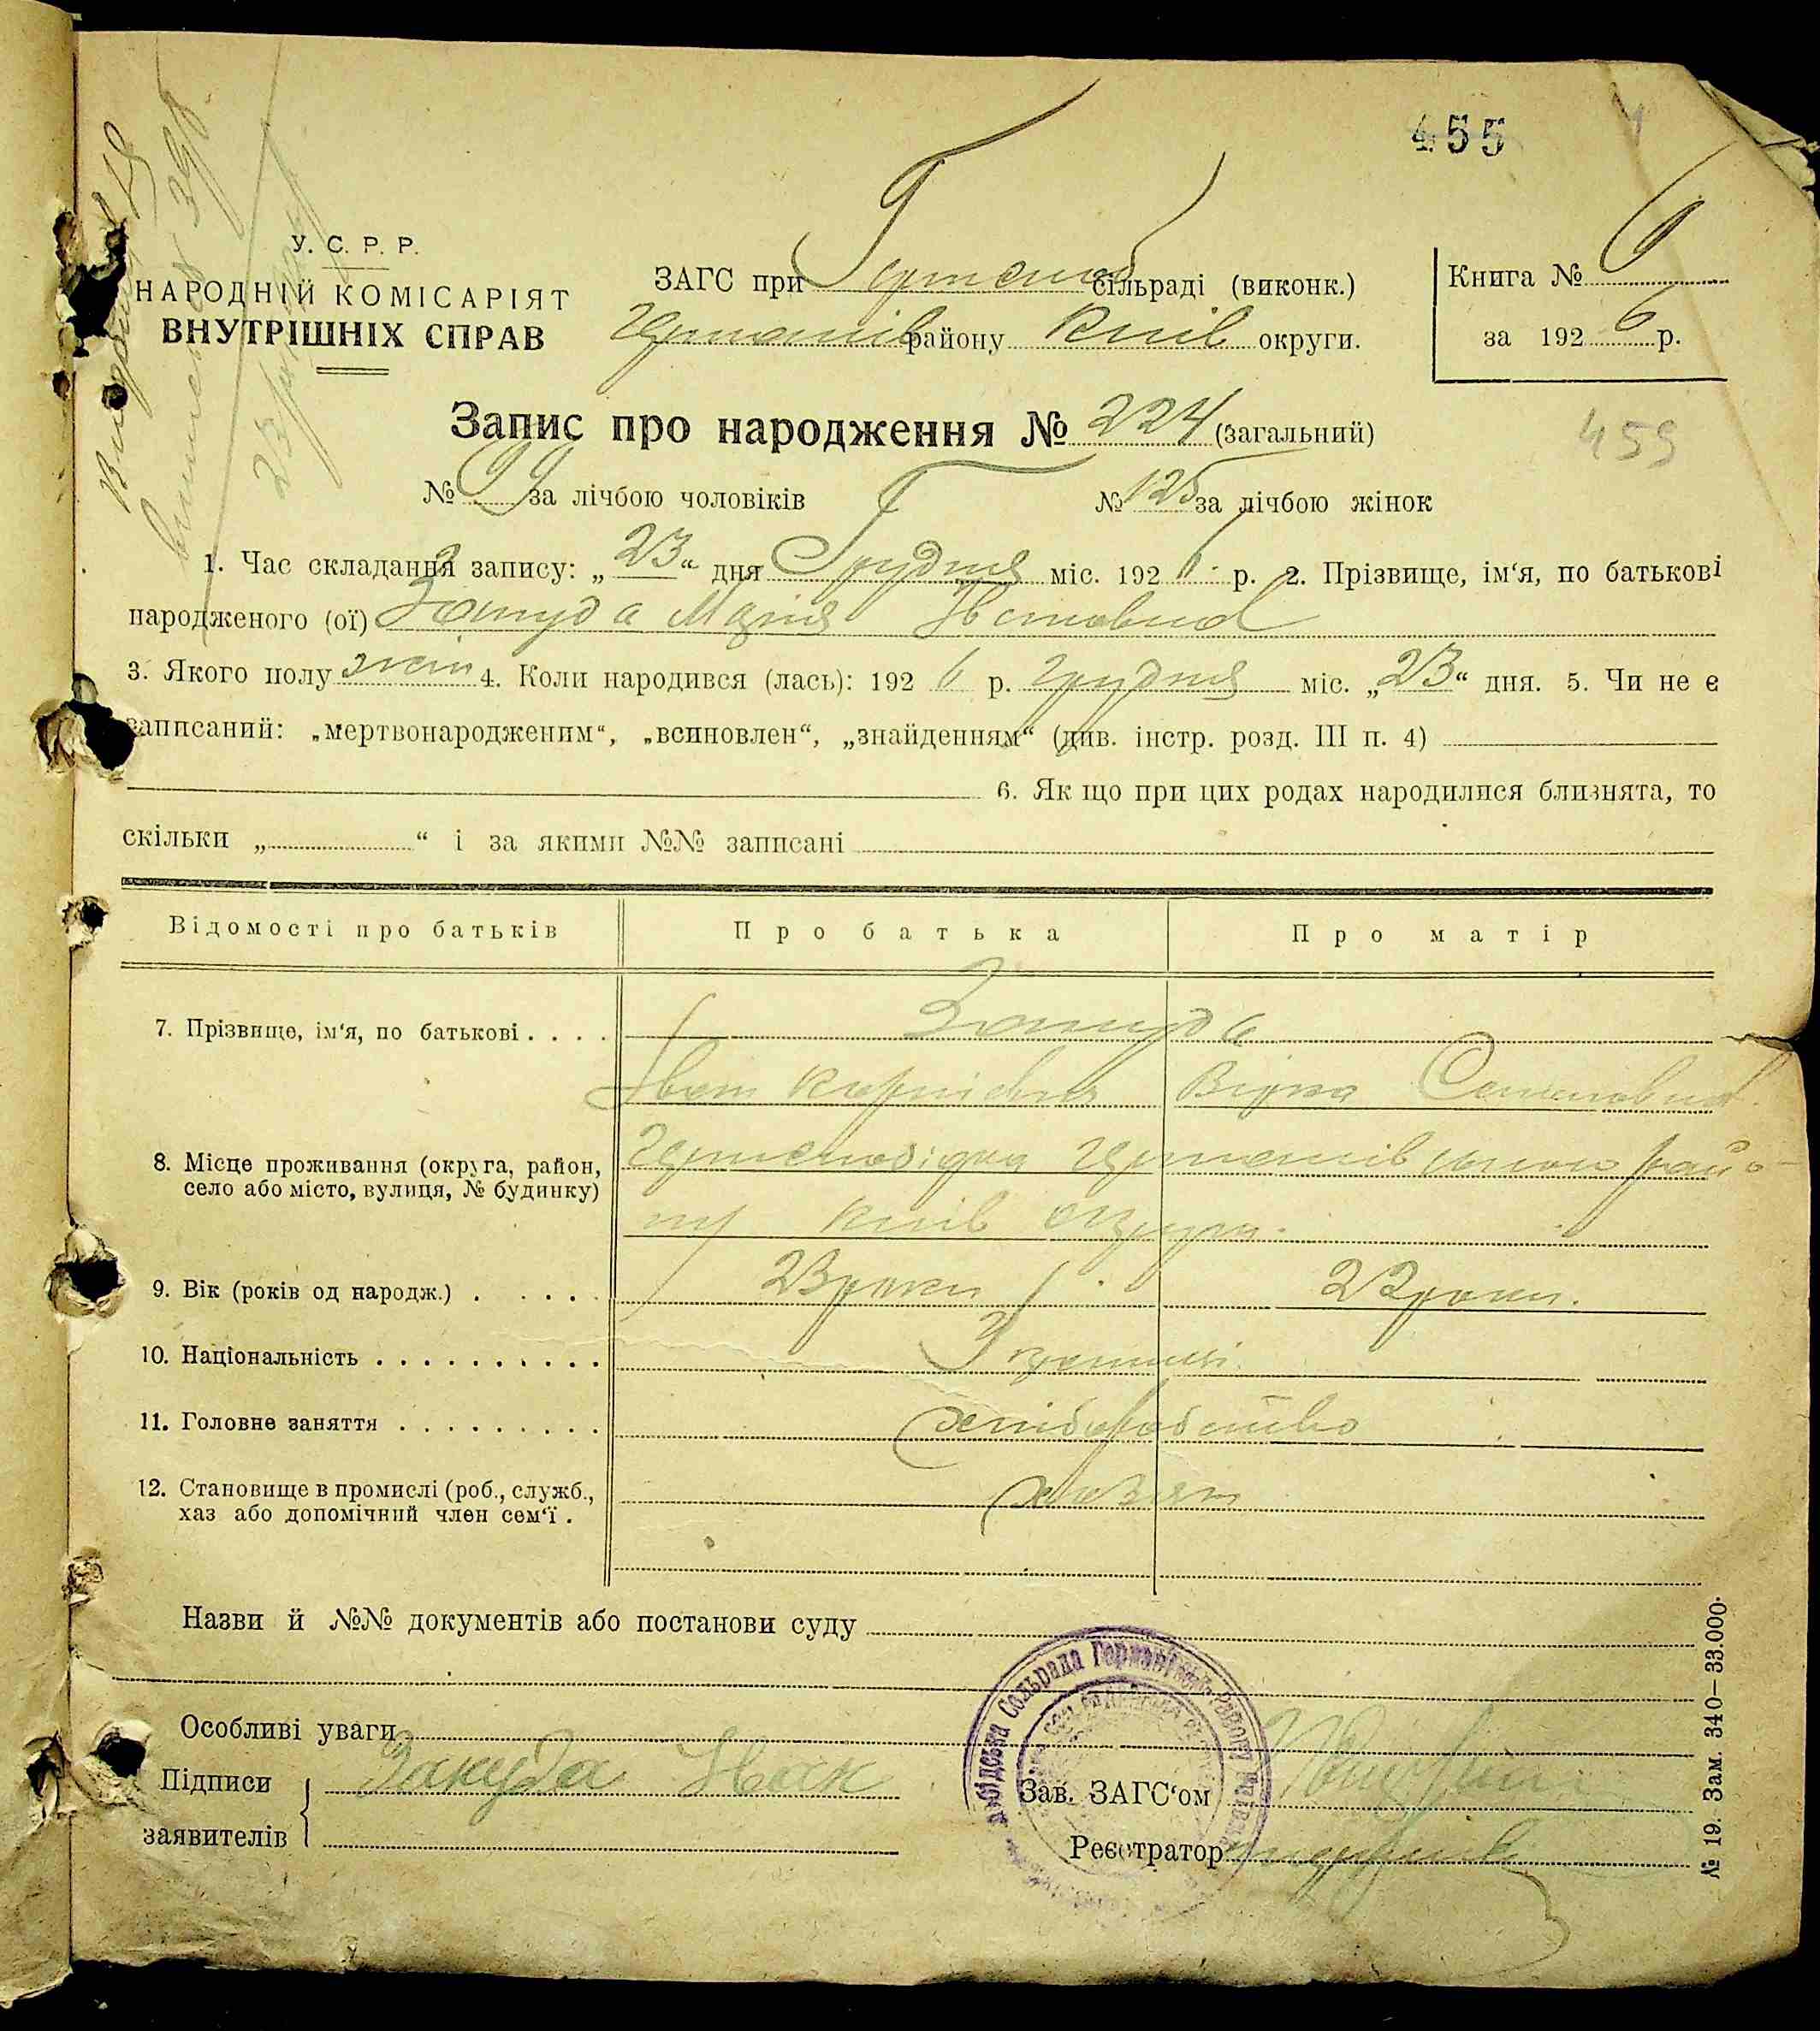 455
У. С. Р. Р.
НАРОДНІЙ КОМІСАРІЯТ
ВНУТРІШНІХ СПРАВ
ЗАГС при сільраді (виконк.)
району Київ округи.
Книга № 6
за 1926 р.
Запис про народження № 224 (загальний)
459
№ 99 за лічбою чоловіків № 125 за лічбою жінок
1. Час складання запису: „23“ дня Грудня міс. 1926 р. 2. Прізвище, ім'я, по батькові
народженого (ої) Закуда Марія Івановна
3. Якого полу жін 4. Коли народився (лась): 1926 р. Грудня міс. „23“ дня. 5. Чи не є
записаний: „мертвонародженим“, „всиновлен“, „знайденням“ (див. інстр. розд. III п. 4)
6. Як що при цих родах народилися близнята, то
скільки „ “ і за якими №№ записані
Відомості про батьків Про батька Про матір
7. Прізвище, ім'я, по батькові . . . . Закуда
Іван Карпович Вірка Семеновна
8. Місце проживання (округа, район,
село або місто, вулиця, № будинку)
ну Київ округи.
9. Вік (років од народж.) . . . . . 23 роки 22 роки.
10. Національність . . . . . . . . . . Українці
11. Головне заняття . . . . . . . . . хліборобство
12. Становище в промислі (роб., служб.,
хаз або допомічний член сем'ї . хазяїн
Назви й №№ документів або постанови суду
Особливі уваги
Підписи Закуда Іван
заявителів
Зав. ЗАГС'ом
Реєстратор
№ 19. Зам. 340—33.000.